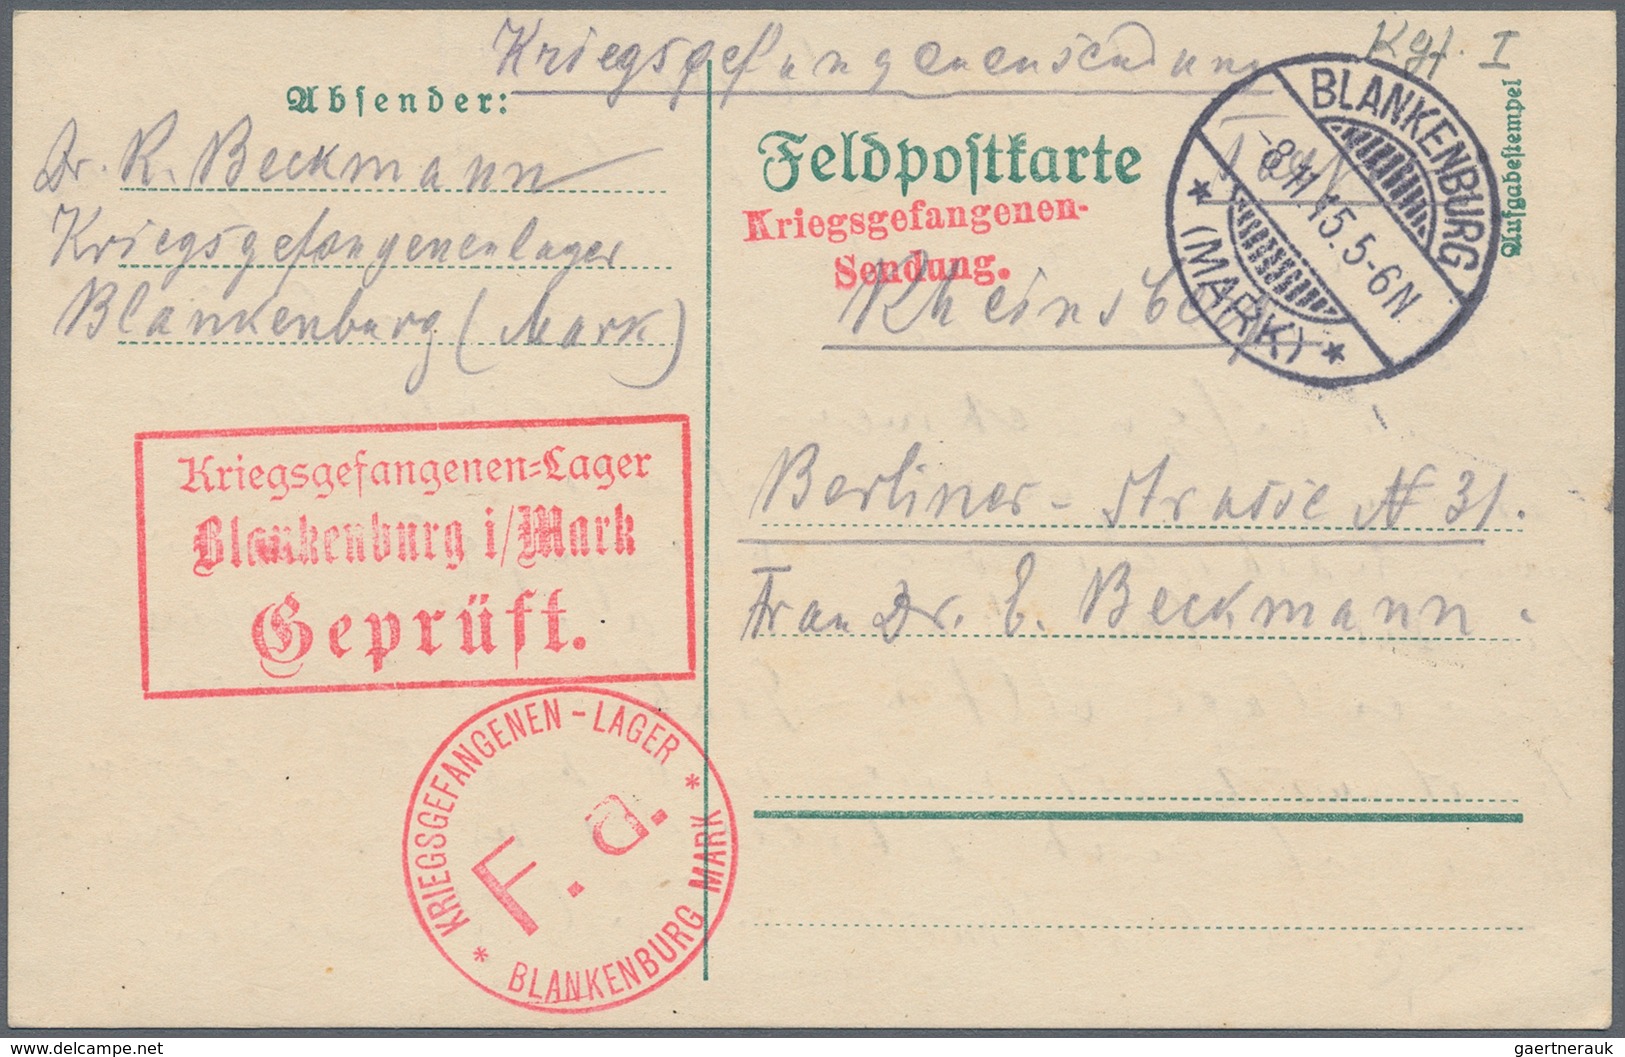 Kriegsgefangenensendung
Kgf. I
Absender:
Dr. R. Beckmann
Kriegsgefangenenlager
Blankenburg (Mark)
Feldpostkarte
Kriegsgefangenen-
Sendung.
BLANKENBURG
-8.11.15.5-6N.
* (MARK) *
Aufgabestempel
Berliner-Strasse № 31.
Frau Dr. E. Beckmann.
Kriegsgefangenen=Lager
Blankenburg i/Mark
Geprüft.
KRIEGSGEFANGENEN-LAGER
F. a.
* BLANKENBURG MARK *
delcampe.net
gaertnerauk